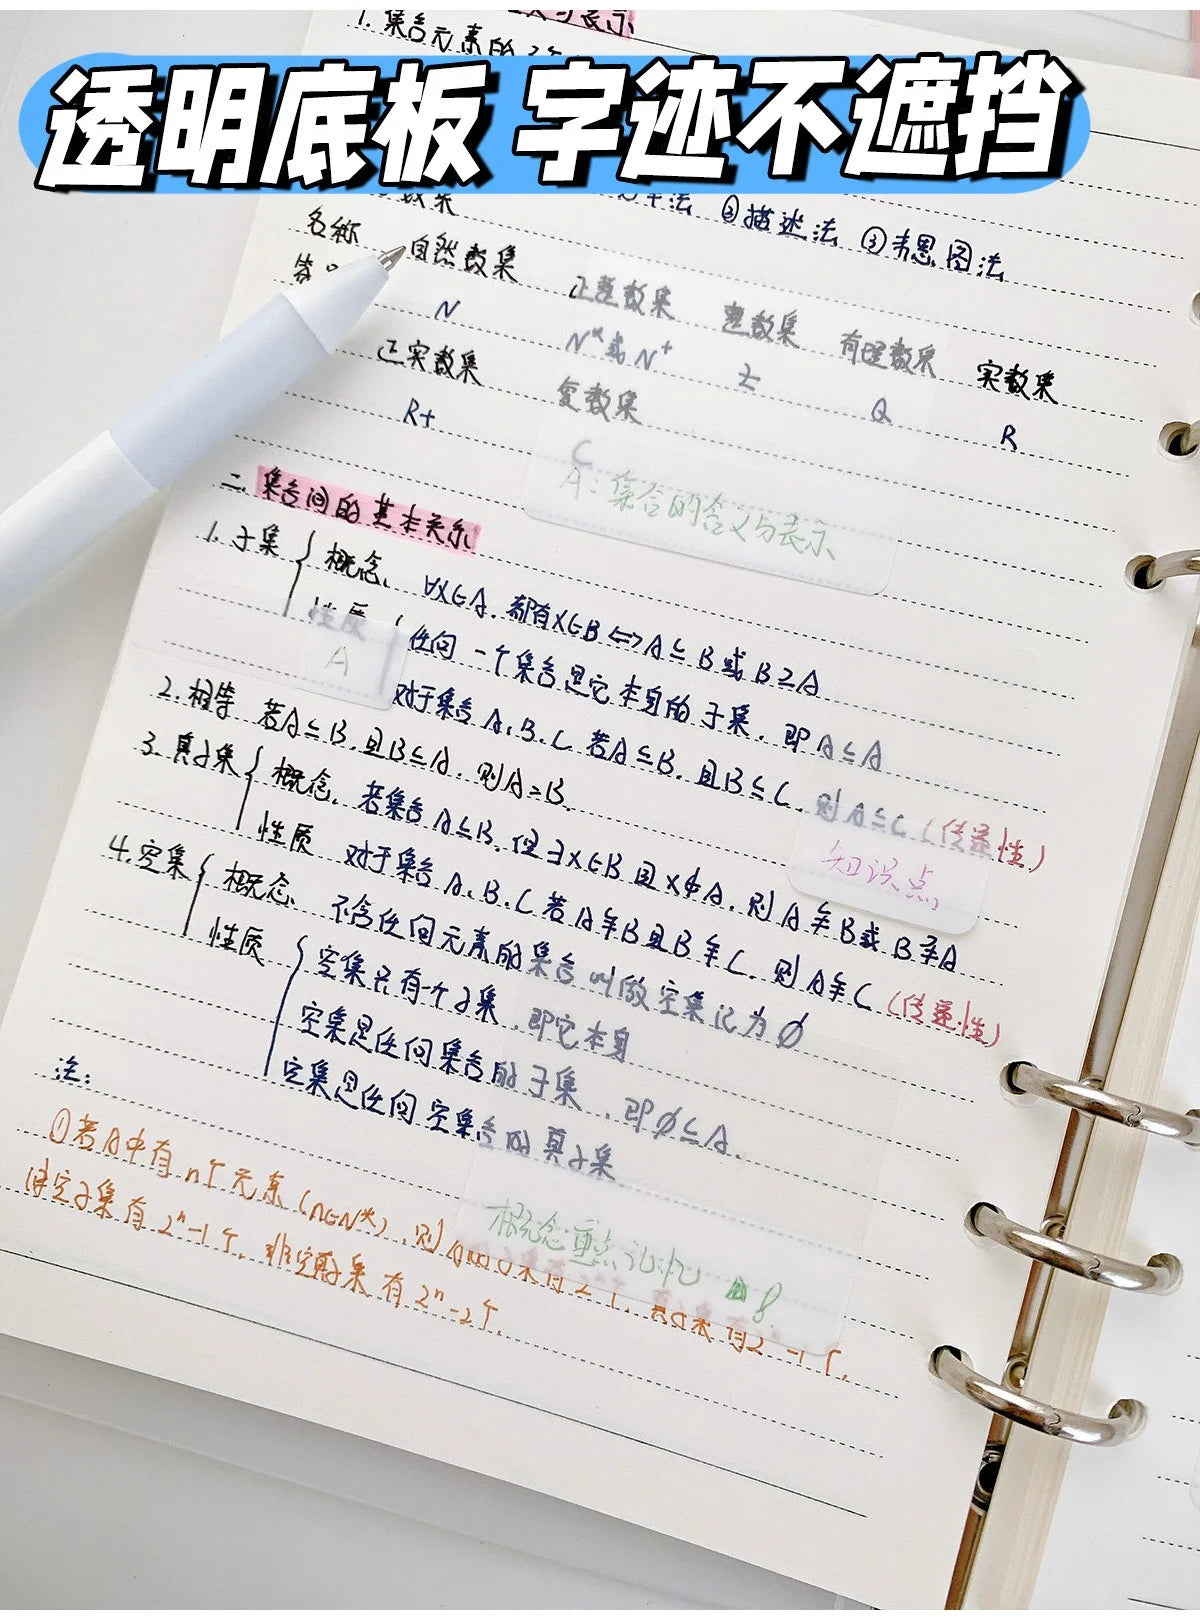 透明底板 字迹不遮挡
1. 集合元素的
数集
②描述法 ③韦恩图法
名称 自然数集 正整数集 整数集 有理数集 实数集
N N*或N+ Z Q R
正实数集 复数集
R+ C
A:集合的含义与表示
二. 集合间的基本关系
1. 子集 { 概念. ∀x∈A. 都有x∈B⇔A⊆B或B⊇A
性质 { 任何一个集合是它本身的子集. 即A⊆A
A
对于集合A.B.C.若A⊆B.且B⊆C.则A⊆C.(传递性)
2. 相等 若A⊆B.且B⊆A.则A=B.
知识点
3. 真子集 { 概念. 若集合A⊆B.但∃x∈B且x∉A.则A⫋B或B⫌A
性质 对于集合A.B.C若A⫋B且B⫋C.则A⫋C(传递性)
4. 空集 { 概念. 不含任何元素的集合叫做空集记为∅
性质 { 空集只有一个子集.即它本身
空集是任何集合的子集.即∅⊆A.
空集是任何空集合的真子集
注:
概念重点记忆
①若A中有n个元素(n∈N*).则
非空子集有2ⁿ-1个. 非空真子集有2ⁿ-2个.